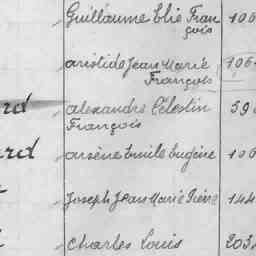 Guillaume Elie Fran
çois
106
aristide Jean Marie
François
106
alexandre Célestin
François
59
arsène Emile Eugène
106
Joseph Jean Marie Pierre
144
Charles Louis
203